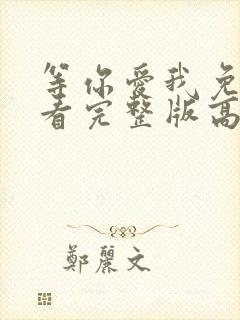 等你爱我免
看完整版高
鄭麗文